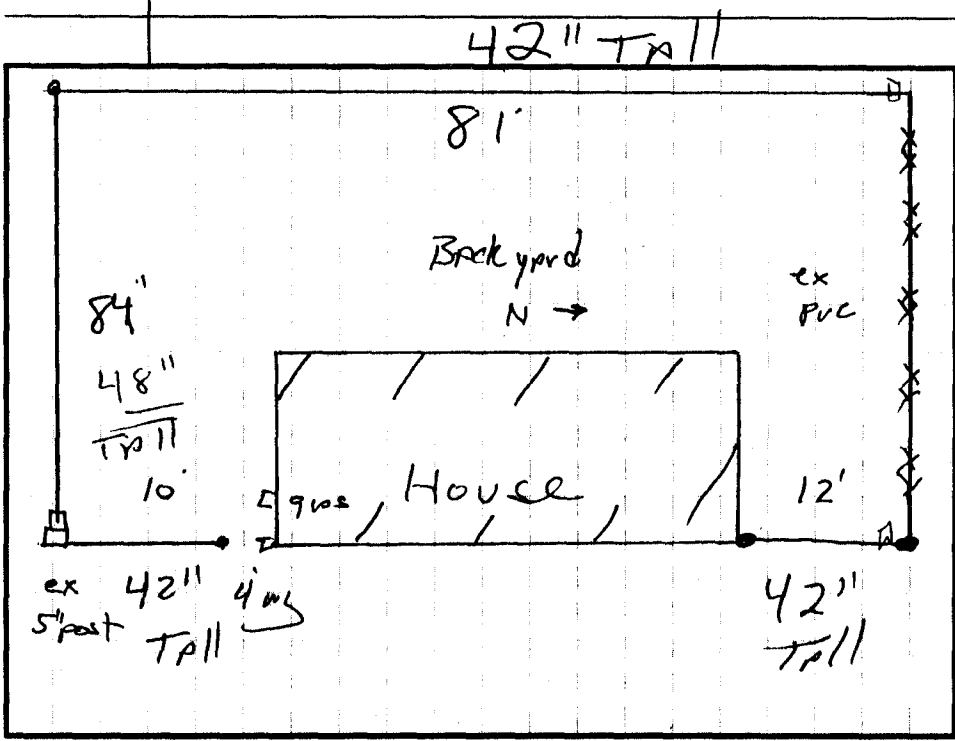 42" Tall
81'
Backyard
N →
ex
PVC
84'
48"
Tall
10'
gas
House
12'
ex
5" post
42"
Tall
4'
42"
Tall